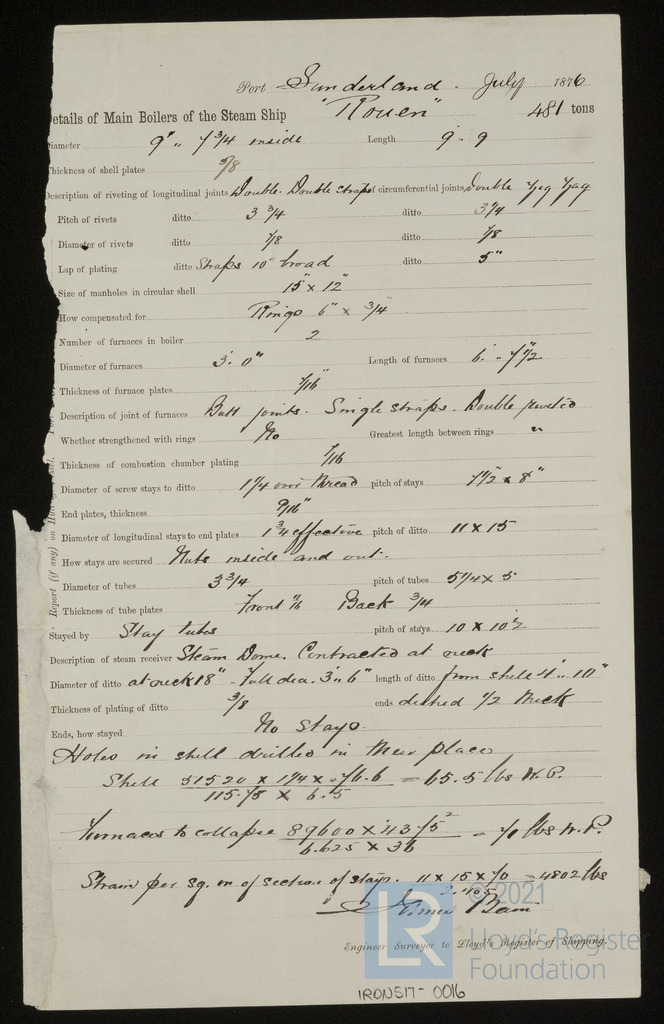 Port Sunderland. July 1876
etails of Main Boilers of the Steam Ship "Rouen" 481 tons
iameter 9' " 7 3/4 inside Length 9 " 9
hickness of shell plates 5/8
Description of riveting of longitudinal joints Double. Double straps of circumferential joints Double Zig Zag
Pitch of rivets ditto 3 3/4 ditto 3 1/4
Diameter of rivets ditto 7/8 ditto 7/8
Lap of plating ditto Straps 10" broad ditto 5"
Size of manholes in circular shell 15" x 12"
How compensated for Rings 6" x 3/4
Number of furnaces in boiler 2
Diameter of furnaces 3'. 0" Length of furnaces 6'. - 7" 1/2
Thickness of furnace plates 7/16"
Description of joint of furnaces Butt joints. Single straps. Double riveted
Whether strengthened with rings No Greatest length between rings "
Thickness of combustion chamber plating 7/16
Diameter of screw stays to ditto 1 1/4 over thread pitch of stays 7 1/2" x 8"
End plates, thickness 9/16"
Diameter of longitudinal stays to end plates 1 3/4 effective pitch of ditto 11 x 15
How stays are secured Nuts inside and out.
Diameter of tubes 3 3/4 pitch of tubes 5 1/4 x 5
Thickness of tube plates Front Back 3/4
Stayed by Stay tubes pitch of stays 10 x 10 1/2
Description of steam receiver Steam Dome. Contracted at neck
Diameter of ditto at neck 18" - Full dia. 3' " 6" length of ditto from shell 4' .. 10"
Thickness of plating of ditto 3/8 ends dished 1/2 thick
Ends, how stayed No stays.
Holes in shell drilled in their places
Shell 51520 x 1 1/4 x .76.6 = 65.5 lbs W.P.
115.75 x 6.5
Furnaces to collapse 89600 x .4375² = 70 lbs W.P.
6.625 x 36
Strain per sq. in of section of stays. 11 x 15 x 70 = 4802 lbs
2.405
Bain
Engineer Surveyor to Lloyd's Register of Shipping.
Report (if any) on Hu
LR © 2021
Lloyd's Register
Foundation
IRONS17-0016